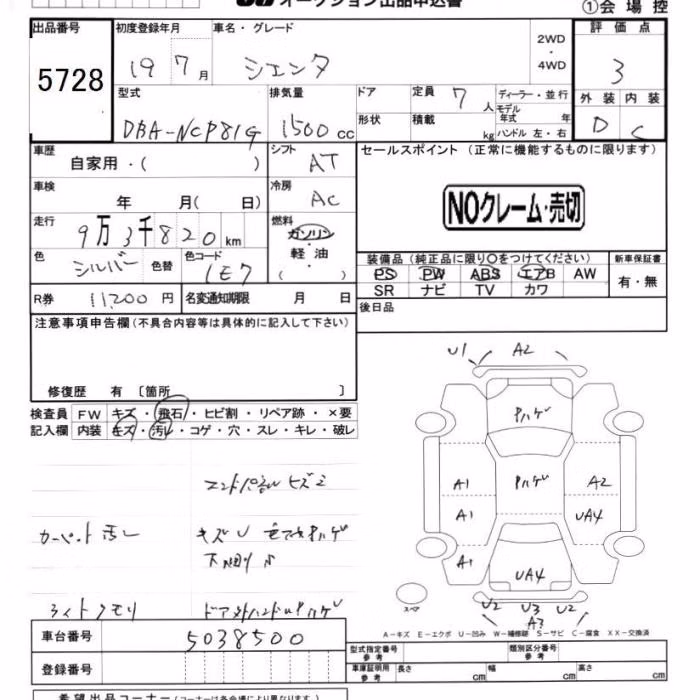 オークション出品申込書
①会場控
出品番号 初度登録年月 車名・グレード 2WD・4WD 評価点
5728 19 7月 シエンタ 3
型式 排気量 ドア 定員 7人 ディーラー・並行 外装 内装
モデル年式 年
DBA-NCP81G 1500cc 形状 積載 kg ハンドル 左・右 D C
車歴 シフト セールスポイント (正常に機能するものに限ります)
自家用・( ) AT
車検 冷房
年 月( 日) AC NOクレーム・売切
走行 燃料
9万3千820km ガソリン・軽油
( )
色 色替 色コード 装備品 (純正品に限り○をつけてください) 新車保証書
シルバー 1E7 PS PW ABS エアB AW 有・無
SR ナビ TV カワ
R券 11200円 名変通知期限 月 日 後日品
注意事項申告欄 (不具合内容等は具体的に記入して下さい)
修復歴 有 〔箇所 〕
検査員 FW キズ・飛石・ヒビ割・リペア跡・×要
記入欄 内装 キズ・汚レ・コゲ・穴・スレ・キレ・破レ
カーペット汚レ キズU
ライトクモリ
U1 A2
Pハゲ
A1 Pハゲ A2
A1 UA4
A1 UA4
スペア U2 U3 U2
A3
A-キズ E-エクボ U-凹み W-補修跡 S-サビ C-腐食 XX-交換済
車台番号 5038500
型式指定番号 参考 類別区分番号 参考
登録番号
車庫証明用 参考 長さ cm 幅 cm 高さ cm
希望出品コーナー (コーナーは各会場により異なります)